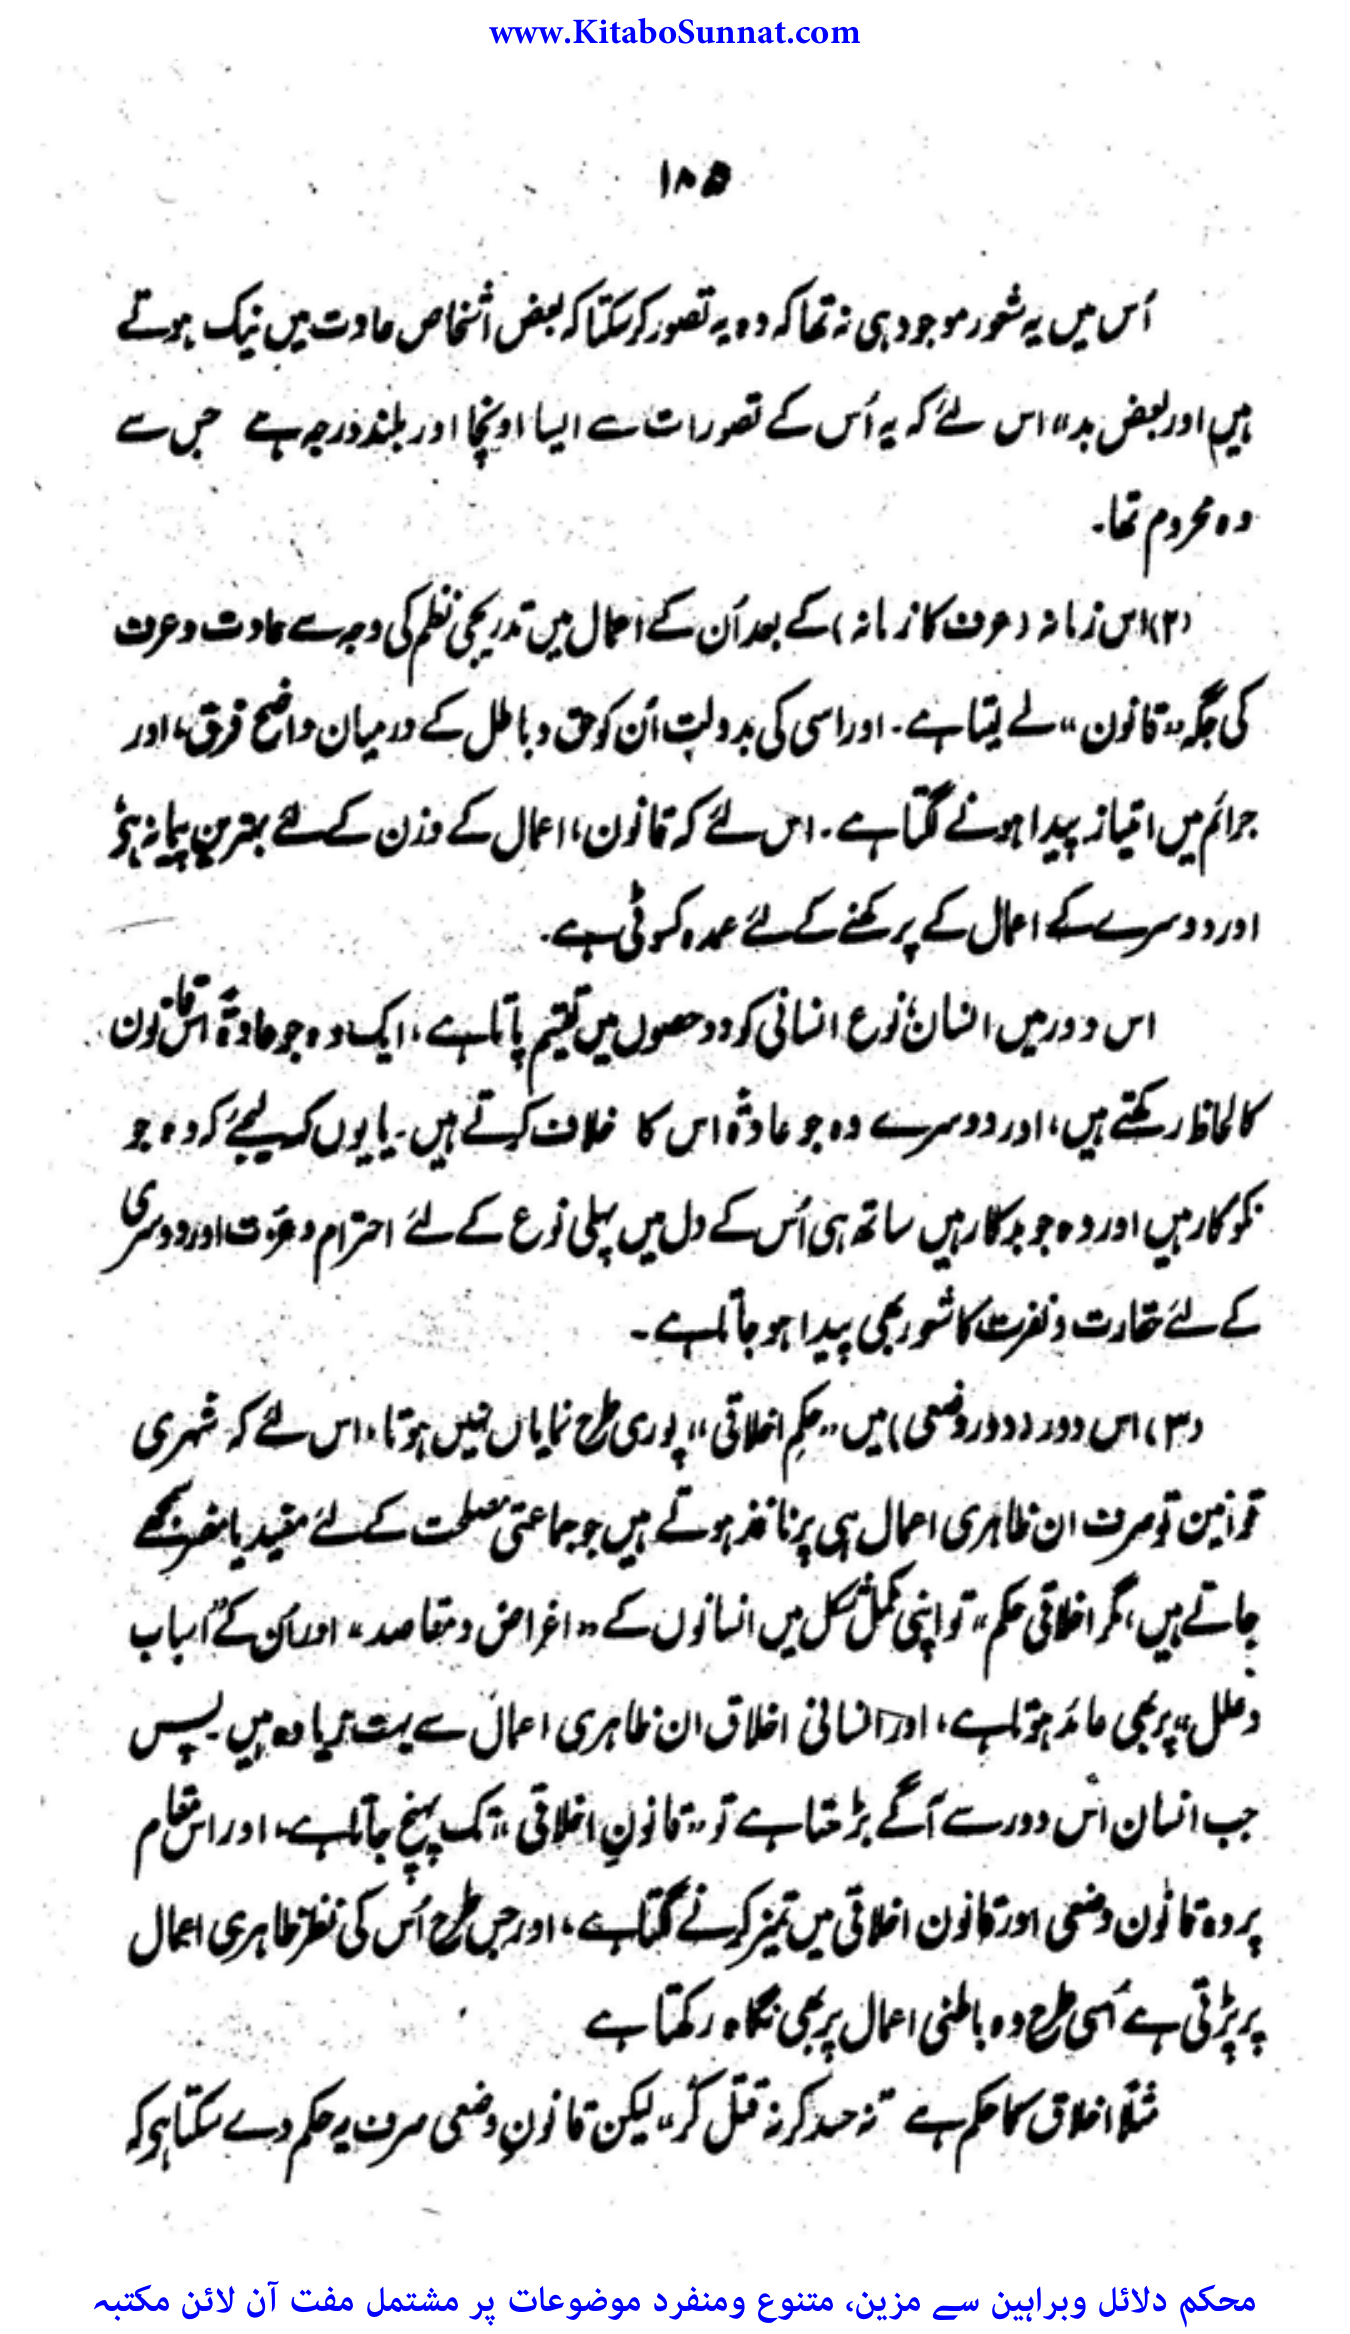 www.KitaboSunnat.com
۱۸۵
اُس میں یہ شعور موجود ہی نہ تھا کہ وہ یہ تصور کر سکتا کہ بعض اشخاص عادت میں نیک ہوتے
ہیں اور بعض بد،، اس لئے کہ یہ اُس کے تصورات سے ایسا اونچا اور بلند درجہ ہے جس سے
وہ محروم تھا۔
(۲) اس زمانہ (عرف کا زمانہ) کے بعد اُن کے اعمال میں تدریجی نظم کی وجہ سے عادت و عرف
کی جگہ ،،قانون،، لے لیتا ہے۔ اور اسی کی بدولت اُن کو حق و باطل کے درمیان واضح فرق، اور
جرائم میں امتیاز پیدا ہونے لگتا ہے۔ اس لئے کہ قانون، اعمال کے وزن کے لئے بہترین پیمانہ ہو
اور دوسرے کے اعمال کے پرکھنے کے لئے عمدہ کسوٹی ہے۔
اس دور میں انسان، نوع انسانی کو دو حصوں میں تقسیم پاتا ہے، ایک وہ جو عادۃً اس قانون
کا لحاظ رکھتے ہیں، اور دوسرے وہ جو عادۃً اس کا خلاف کرتے ہیں۔ یا یوں کہہ لیجئے کہ وہ جو
نکوکار ہیں اور وہ جو بدکار ہیں ساتھ ہی اُس کے دل میں پہلی نوع کے لئے احترام و عزت اور دوسری
کے لئے حقارت و نفرت کا شعور بھی پیدا ہو جاتا ہے۔
(۳) اس دور (دور وضعی) میں ،،حکمِ اخلاقی،، پوری طرح نمایاں نہیں ہوتا، اس لئے کہ شہری
قوانین تو صرف ان ظاہری اعمال ہی پر نافذ ہوتے ہیں جو جماعتی مصلحت کے لئے مفید یا مضر سمجھے
جاتے ہیں، مگر اخلاقی حکم،، تو اپنی مکمل شکل میں انسانوں کے ،،اغراض و مقاصد،، اور اُن کے ،،اسباب
و علل،، پر بھی عائد ہوتا ہے، اور انسانی اخلاق ان ظاہری اعمال سے بہت زیادہ ہیں۔ پس
جب انسان اُس دور سے آگے بڑھتا ہے تو ،،قانونِ اخلاقی،، تک پہنچ جاتا ہے، اور اس مقام
پر وہ قانون وضعی اور قانون اخلاقی میں تمیز کرنے لگتا ہے، اور جس طرح اُس کی نظر ظاہری اعمال
پر پڑتی ہے اُسی طرح وہ باطنی اعمال پر بھی نگاہ رکھتا ہے
مثلاً اخلاق کا حکم ہے "نہ حسد کر نہ قتل کر،، لیکن قانونِ وضعی صرف یہ حکم دے سکتا ہو کہ
محکم دلائل وبراہین سے مزین، متنوع ومنفرد موضوعات پر مشتمل مفت آن لائن مکتبہ